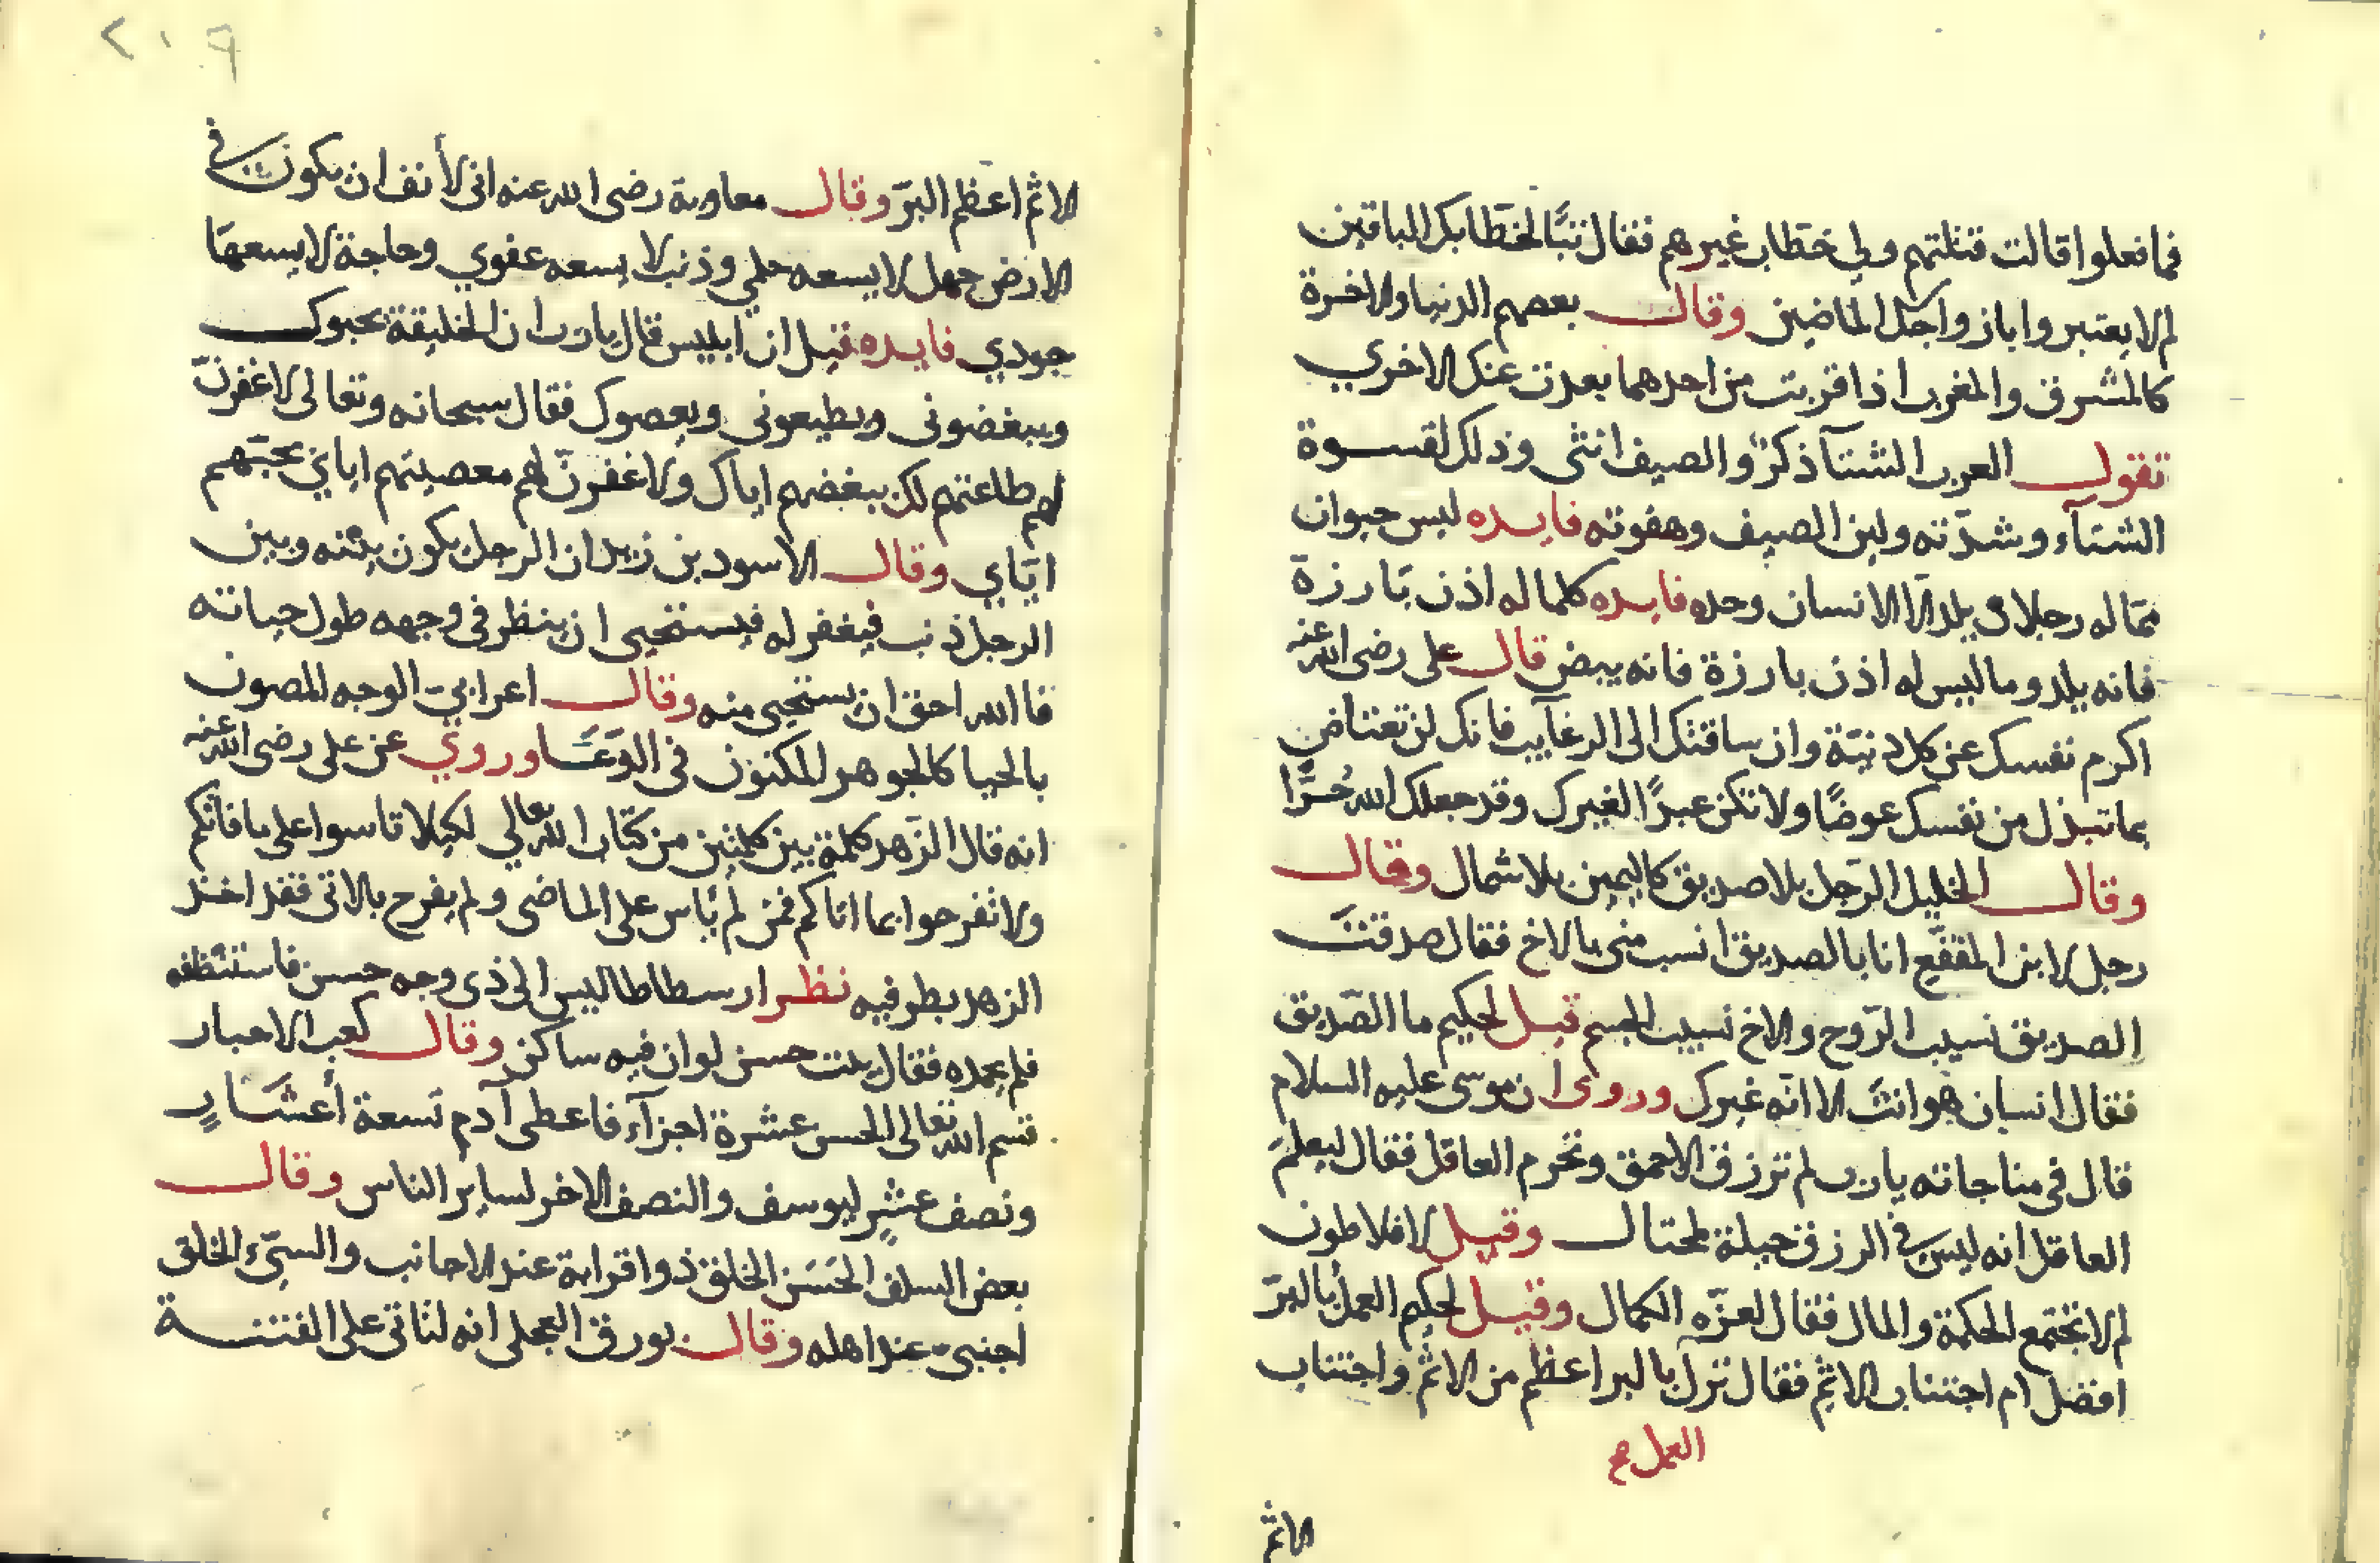 فما فعلوا قالت قتلتهم ولي خطاب غيرهم فقال تبًّا لخطابك الباقين
لم لا يعتبروا باز واجك الماضين وقال بعضهم الدنيا والاخرة
كالمشرق والمغرب اذا قربت من احدهما بعدت عنك الاخري
تقول العرب الشتآ ذكرٌ والصيف انثى وذلك لقسوة
الشتآء وشدّته ولين الصيف وهفوته فايده ليس حيوان
ممّا له رجلان يلد الّا الانسان وحده فايده كلما له اذن بارزة
فانه يلد وما ليس له اذن بارزة فانه يبض قال على رضى الله عنه
اكرم نفسك عن كل دنيّة وان ساقتك الى الرغآيب فانك لن تعتاض
بما تبذل من نفسك عوضًا ولا تكن عبدًا لغيرك وقد جعلك الله حُرًّا
وقال الخليل الرّجل بلا صديق كاليمين بلا شمال وقال
رجل لابن المقفّع انا بالصديق انسب منى بالاخ فقال صدقت
الصديق نسيب الرّوح والاخ نسيب الجسم قيل لحكيم ما الصّديق
فقال انسان هو انت الا انّه غيرك وروى ان موسى عليه السلام
قال فى مناجاته يارب لم ترزق الاحمق وتحرم العاقل فقال ليعلم
العاقل انه ليس فى الرزق حيلة لمحتال وقيل لافلاطون
لم لا تجتمع الحكمة والمال فقال لعزّه الكمال وقيل لحكيم العمل بالبرّ
افضل ام اجتناب الاثم فقال ترك بالبر اعظم من الاثم واجتناب
العمل صح
الاثم
الاثم اعظم البرّ وقال معاوية رضى الله عنه انى لأنف ان يكون فى
الارض جهل لا يسعه حلمي وذنب لا يسعه عفوي وحاجة لا يسعها
جودي فايده قيل ان ابليس قال يارب ان الخليقة تحبوك
ويبغضونى ويطيعونى ويعصوك فقال سبحانه وتعالى لاغفرنّ
لهم طاعتهم لك ببغضهم اياك ولاغفرنّ لهم معصيتهم اياي بحبّهم
ايّاي وقال الاسود بن زيد ان الرجل يكون بينه وبين
الرجل ذنب فيغفر له فيستحيى ان ينظر فى وجهه طول حياته
فا الله احق ان يستحيى منه وقال اعرابي الوجه المصون
بالحيا كالجوهر المكنون فى الوعا وروي عن على رضى الله عنه
انه قال الزّهد كلمة بين كلمتين من كتاب الله تعالي لكيلا تاسوا على ما فاتكم
ولا تفرحوا بما اتاكم فمن لم ياس على الماضى ولم يفرح بالاتى فقد اخذ
الزهد بطرفيه نظر ارسطاطاليس الى ذى وجه حسن فاستنطقه
فلم يحمده فقال بيت حسن لو ان فيه ساكن وقال كعب الاحبار
قسم الله تعالى الحسن عشرة اجزآء فاعطى آدم تسعة أعشارٍ
ونصف عشرٍ ليوسف والنصف الاخر لساير الناس وقال
بعض السلف الحسَن الخلق ذوا قرابة عند الاجانب والسيّء الخلق
اجنبى عند اهله وقال بورق العجلى انه لتاتى على الفتنة